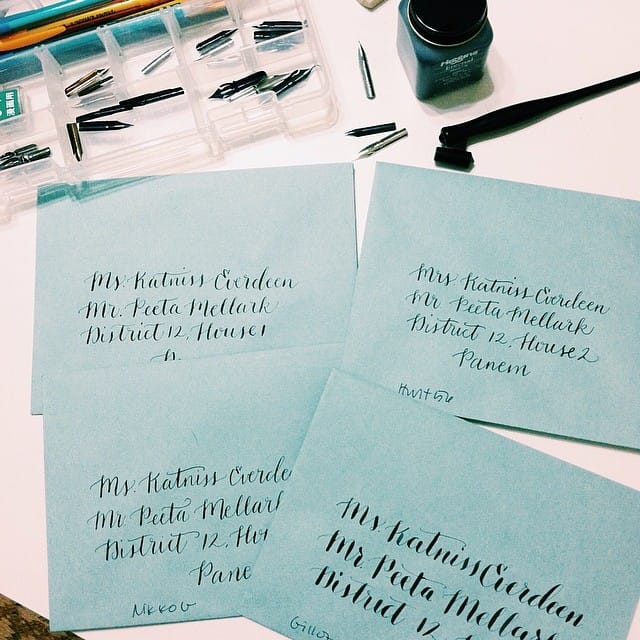 Higgins
Eternal
Ms. Katniss Everdeen
Mr. Peeta Mellark
District 12, House 1
Mrs Katniss Everdeen
Mr Peeta Mellark
District 12, House 2
Panem
Hunt 56
Ms. Katniss Everde
Mr Peeta Mellar
District 12, Hou
Pane
Nikko G
Ms Katniss Everdeen
Mr Peeta Mellark
District 12
Gillo